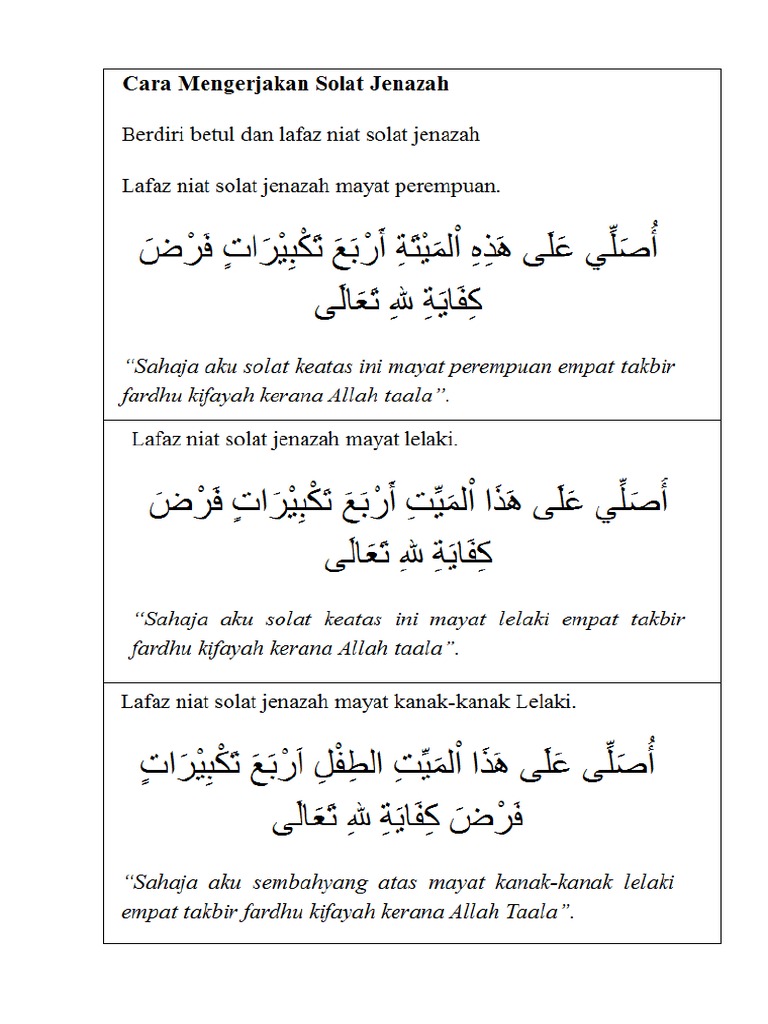 Cara Mengerjakan Solat Jenazah
Berdiri betul dan lafaz niat solat jenazah
Lafaz niat solat jenazah mayat perempuan.
أُصَلِّي عَلَى هَذِهِ اْلمَيْتَةِ أَرْبَعَ تَكْبِيْرَاتٍ فَرْضَ
كِفَايَةِ للهِ تَعَالَى
“Sahaja aku solat keatas ini mayat perempuan empat takbir
fardhu kifayah kerana Allah taala”.
Lafaz niat solat jenazah mayat lelaki.
أَصَلِّي عَلَى هَذَا اْلمَيِّتِ أَرْبَعَ تَكْبِيْرَاتٍ فَرْضَ
كِفَايَةِ للهِ تَعَالَى
“Sahaja aku solat keatas ini mayat lelaki empat takbir
fardhu kifayah kerana Allah taala”.
Lafaz niat solat jenazah mayat kanak-kanak Lelaki.
أُصَلِّى عَلَى هَذَا اْلمَيِّتِ الطِفْلِ اَرْبَعَ تَكْبِيْرَاتٍ
فَرْضَ كِفَايَةِ للهِ تَعَالَى
“Sahaja aku sembahyang atas mayat kanak-kanak lelaki
empat takbir fardhu kifayah kerana Allah Taala”.